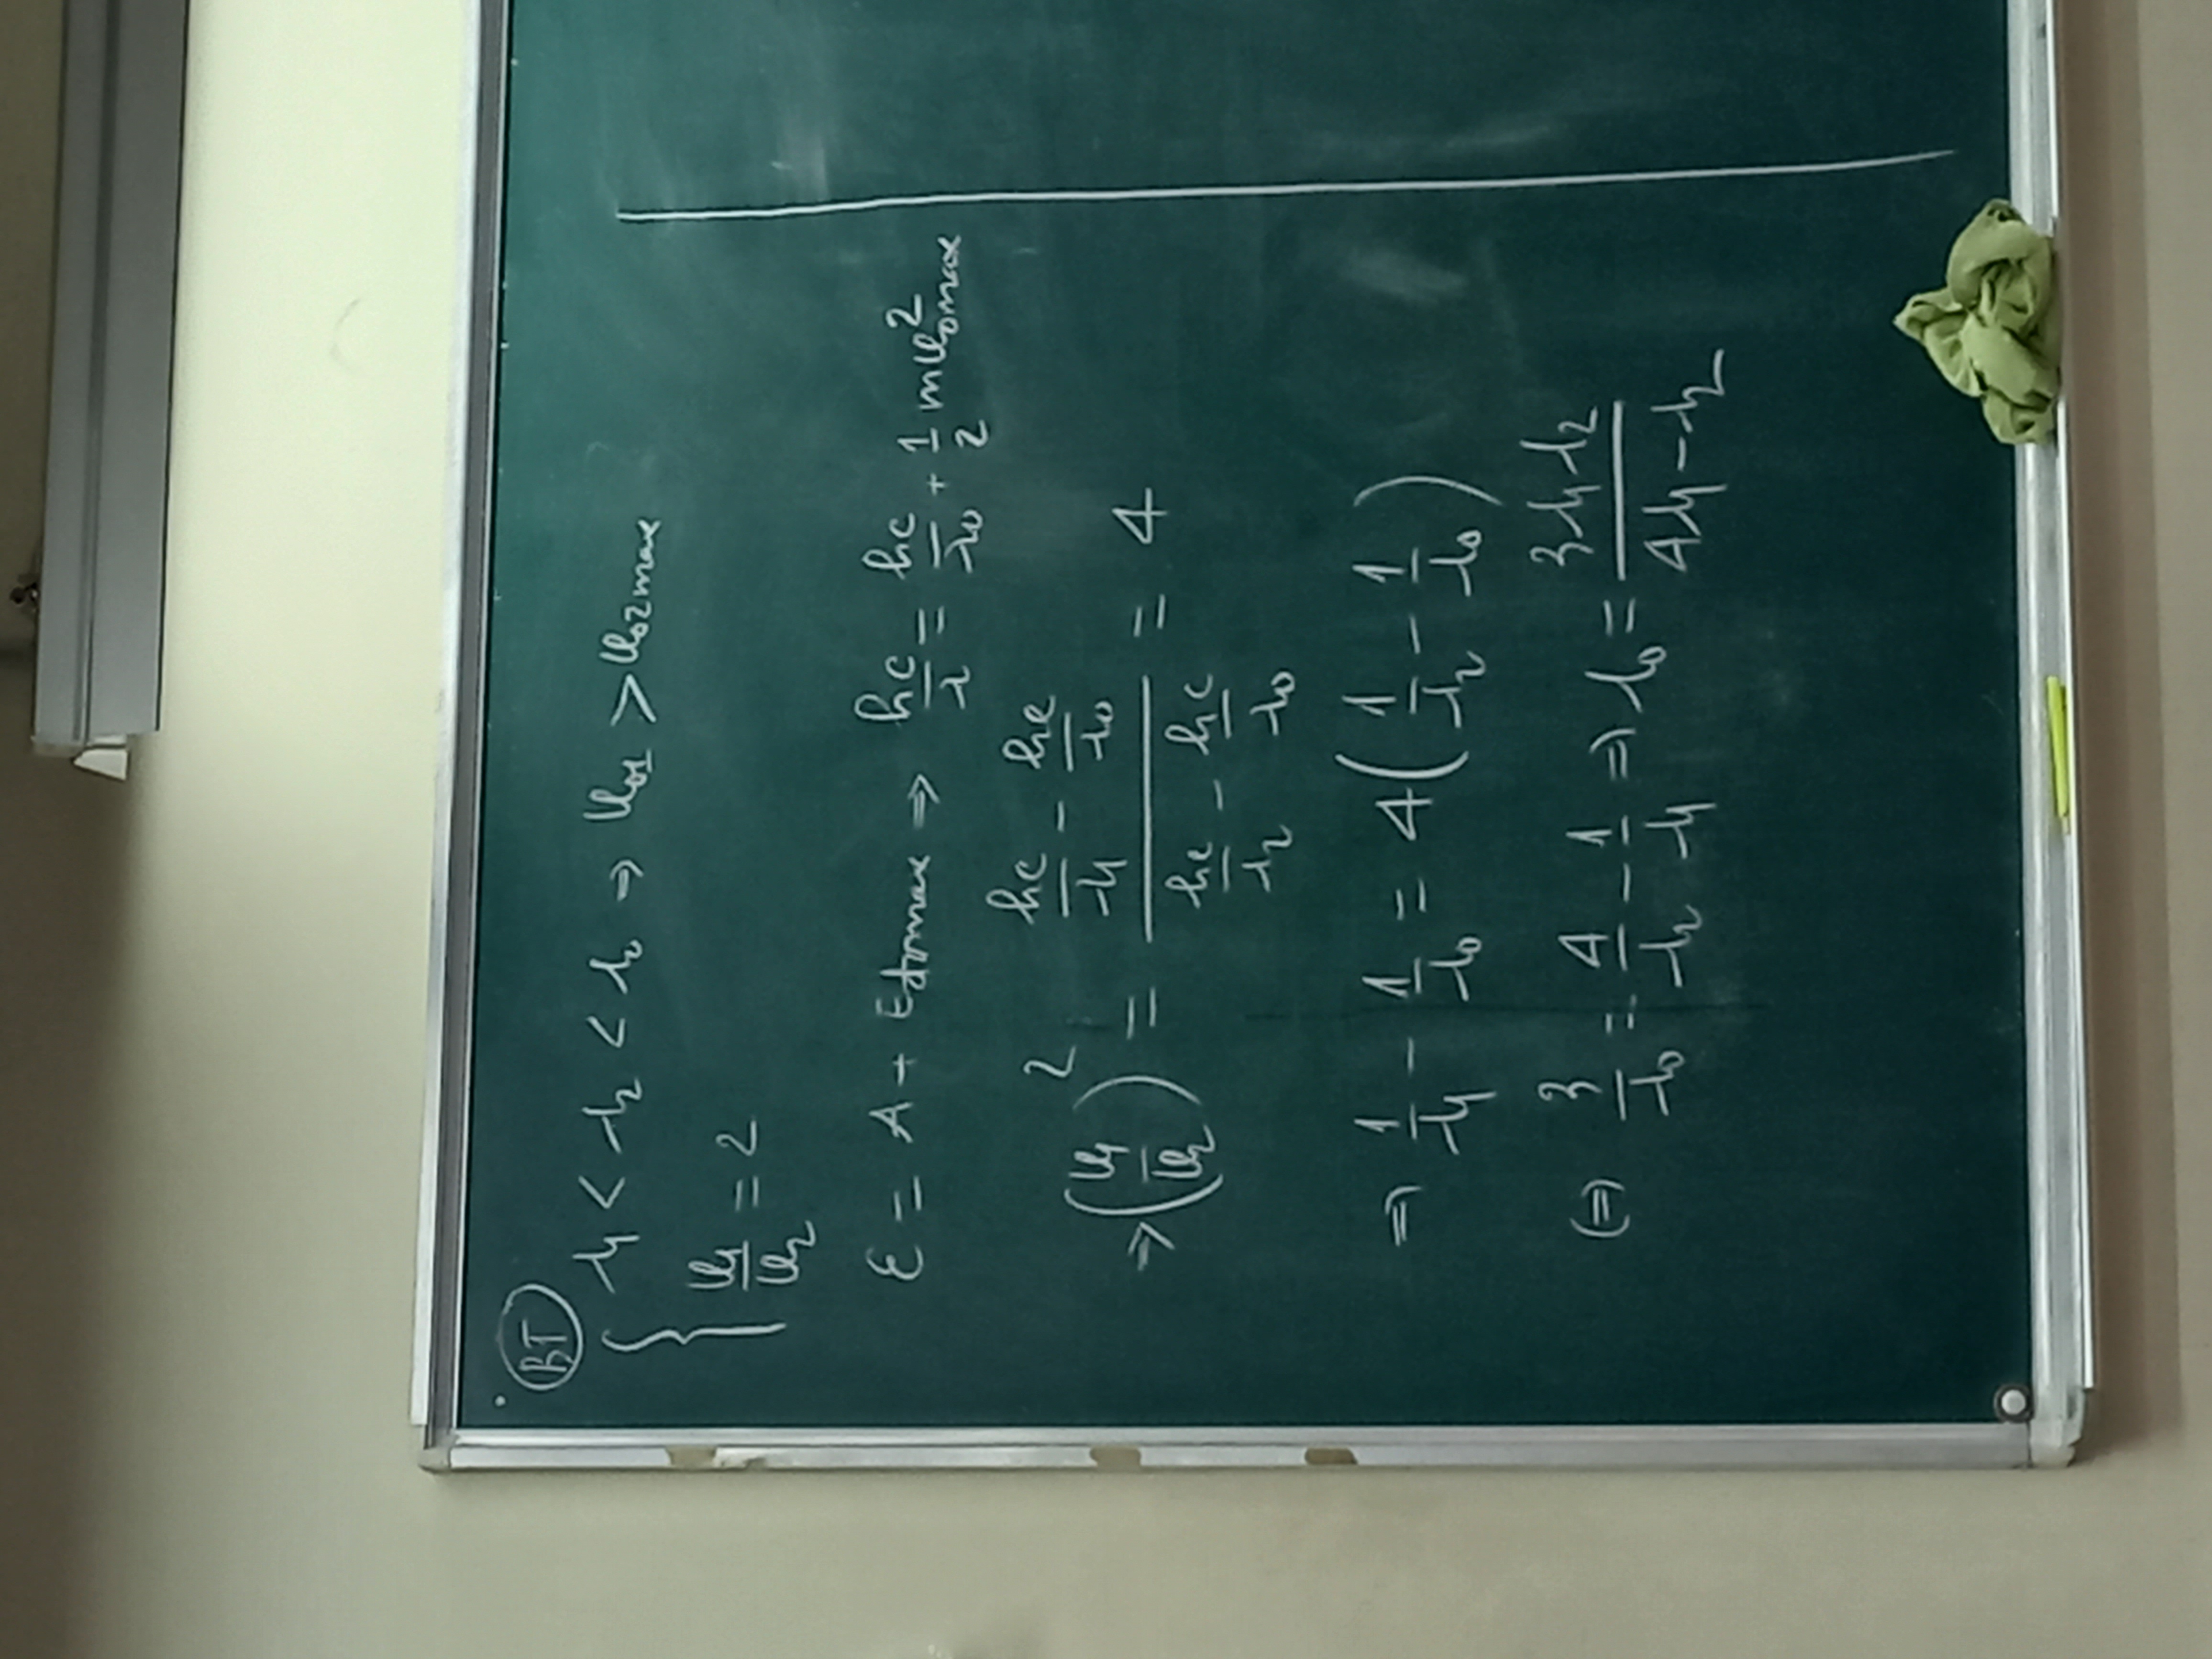 BT
λ₁ < λ₂ < λ₀ ⇒ v₀₁ > v₀₂max
v₁/v₂ = 2
ε = A + Eđ₀max ⇒ hc/λ = hc/λ₀ + 1/2 mv₀max²
⇒ (v₁/v₂)² = (hc/λ₁ − hc/λ₀)/(hc/λ₂ − hc/λ₀) = 4
⇒ 1/λ₁ − 1/λ₀ = 4(1/λ₂ − 1/λ₀)
(=) 3/λ₀ = 4/λ₂ − 1/λ₁ ⇒ λ₀ = 3λ₁λ₂/(4λ₁ − λ₂)